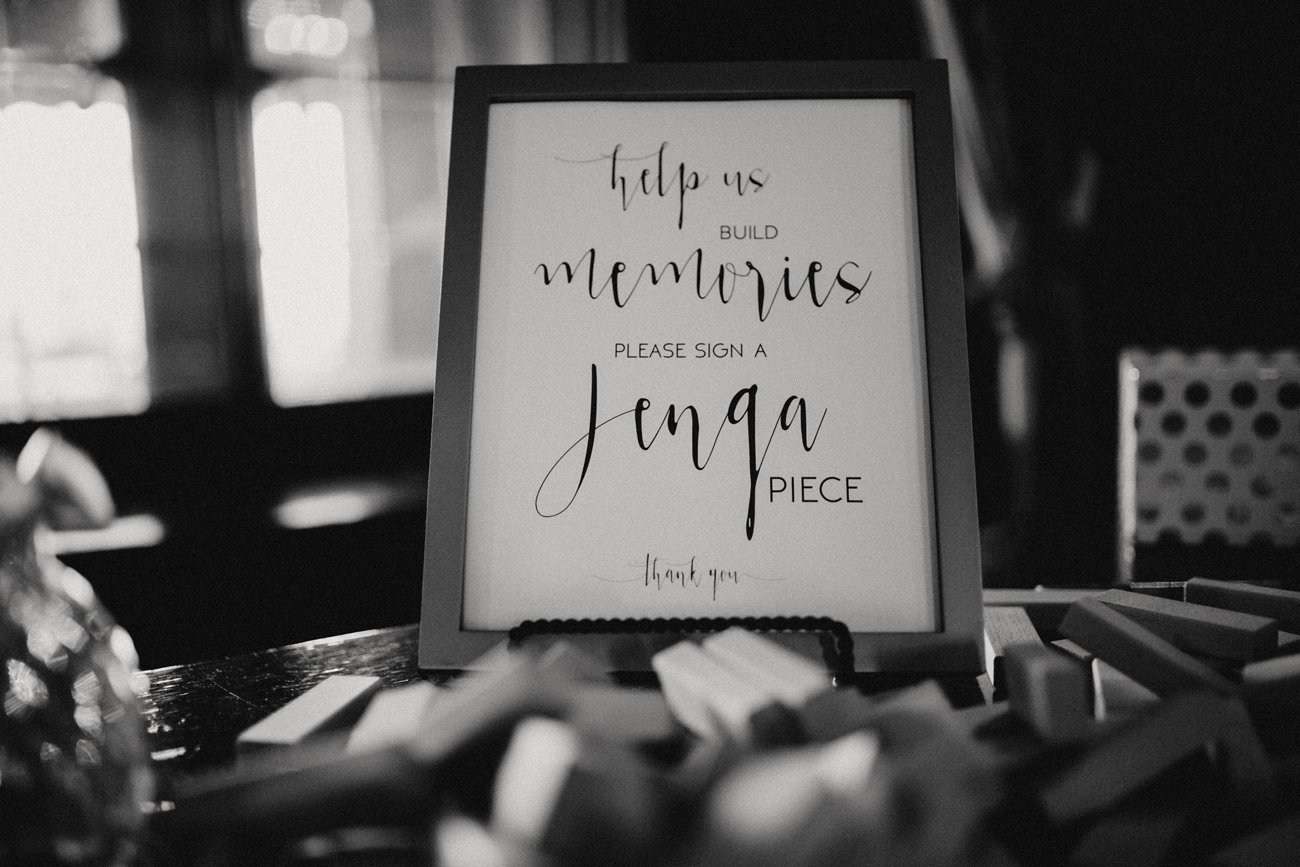 help us
BUILD
memories
PLEASE SIGN A
Jenga
PIECE
thank you